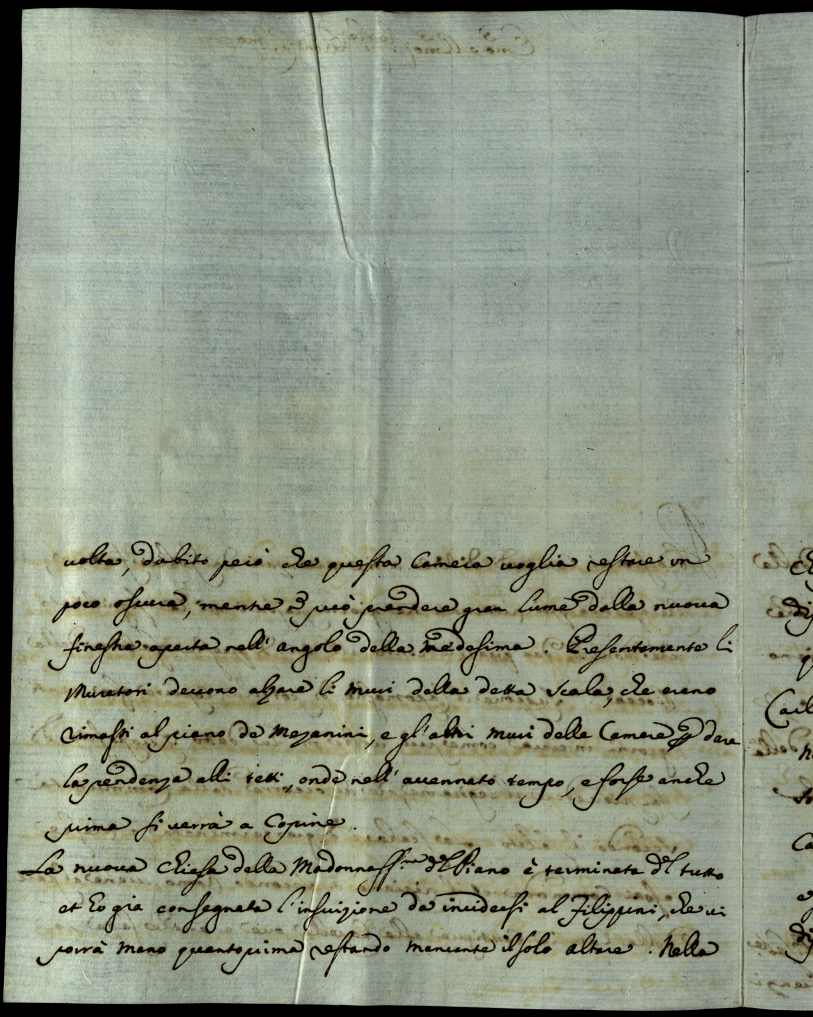 volta, dubito però che questa Camera voglia restare un
poco oscura, mentre può prendere gran lume dalla nuova
finestra aperta nell' angolo della medesima. Presentemente li
Muratori devono alzare li muri della detta scala, che erano
rimasti al piano de Mezanini, e gl' altri muri delle Camere p dare
la pendenza alli tetti, onde nell' avennato tempo, e forse anche
prima si verrà a Coprire.
La nuova Chiesa della Madonna SSma del Piano è terminata del tutto
et ho gia consegnata l' inscrizione da incidersi al Filippini, che vi
porrà mano quantoprima restando mancante il solo altare. Nella